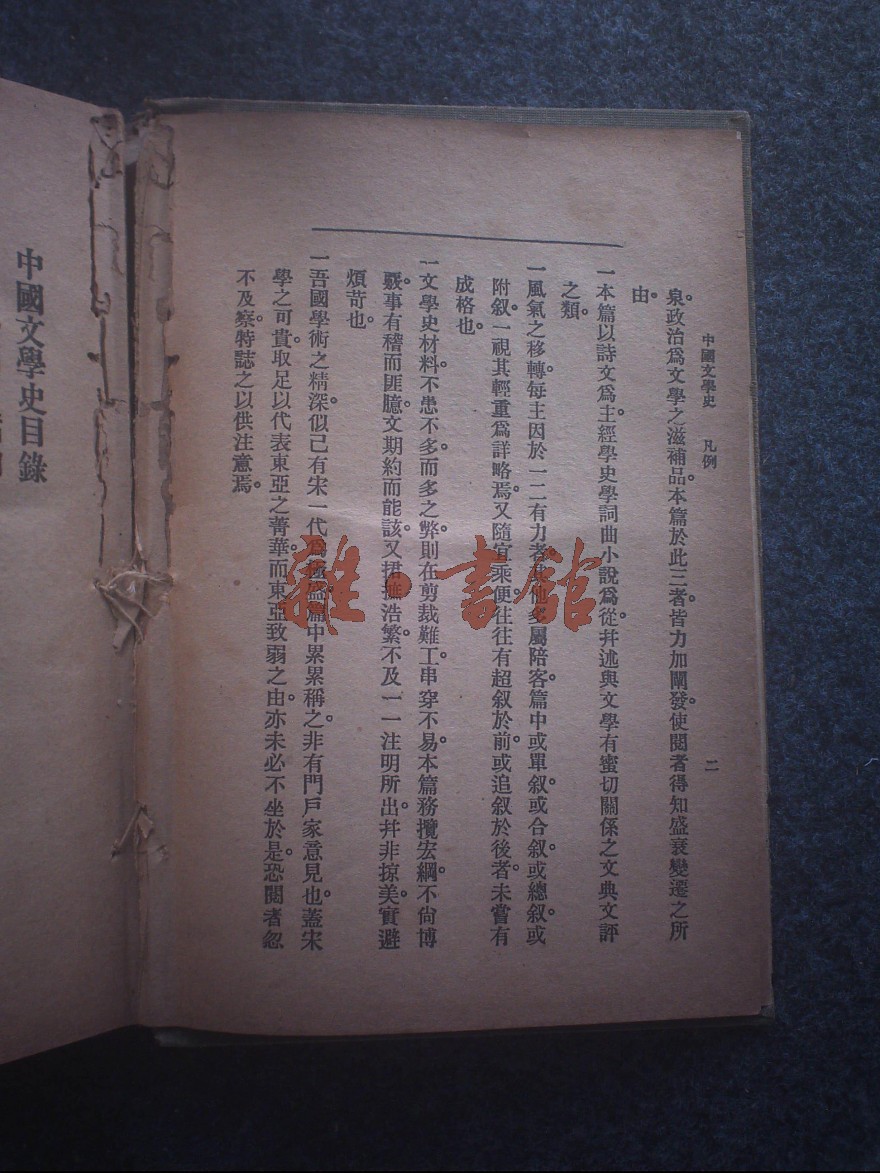 中國文學史　凡例　二
泉。政治爲文學之滋補品。本篇於此三者。皆力加闡發。使閱者得知盛衰變遷之所
由。
一本篇以詩文爲主。經學史學詞曲小說爲從。幷述與文學有密切關係之文典文評
之類。
一風氣之移轉。每主因於一二有力者。其他多屬陪客。篇中或單叙。或合叙。或總叙。或
附叙。一視其輕重爲詳略焉。又隨宜乘便。往往有超叙於前。或追叙於後者。未嘗有
成格也。
一文學史材料。不患不多。而多之弊。則在剪裁難工。串穿不易。本篇務攬宏綱。不尙博
覈。事有稽而匪臆。文期約而能該。又捃摭浩繁。不及一一注明所出。幷非掠美。實避
煩苛也。
一吾國學術之精深。似已有宋一代爲極盛。篇中累累稱之。非有門戶家意見也。蓋宋
學之可貴。取足以代表東亞之菁華。而東亞致弱之由。亦未必不坐於是。恐閱者忽
不及察。特誌之以供注意焉。
中國文學史目錄
雜·書館